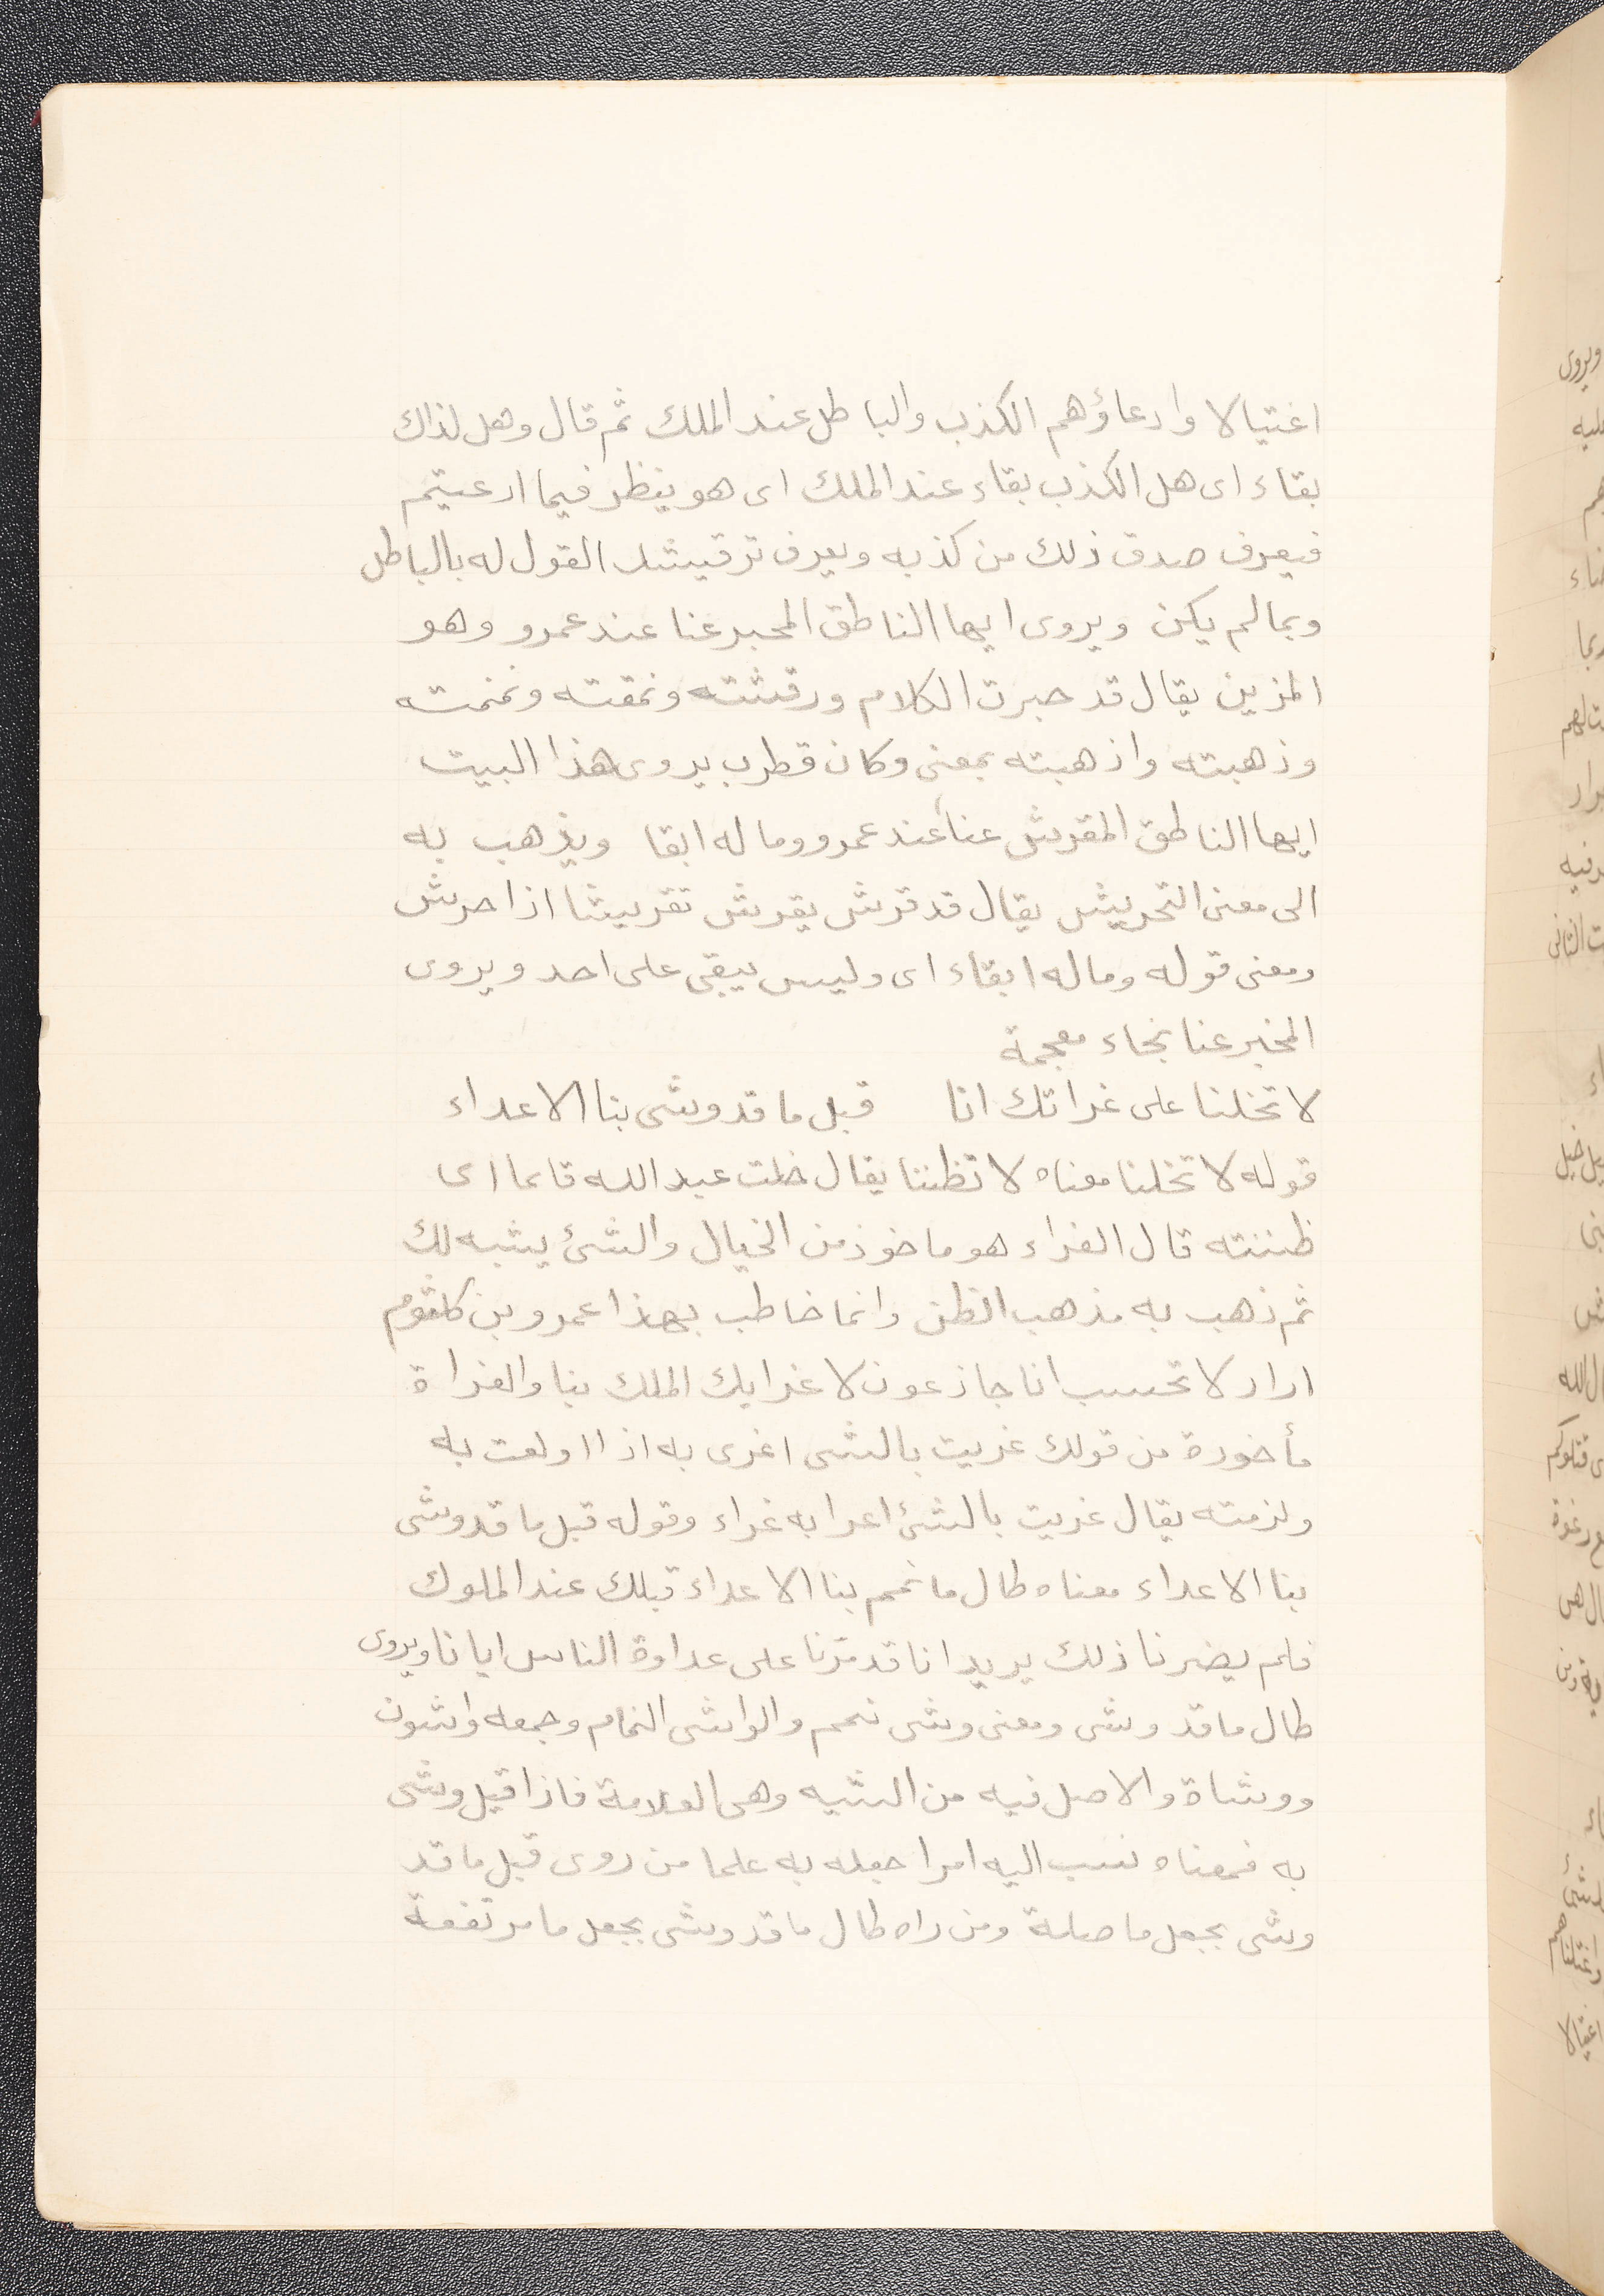 اغتيالا وادعاؤهم الكذب والباطل عند الملك ثم قال وهل لذاك
بقاء اى هل الكذب بقاء عند الملك اى هو ينظر فيما ادعيتم
فيعرف صدق ذلك من كذبه ويعرف ترقيشك القول له بالباطل
وبمالم يكن ويروى ايها الناطق المحبر عنا عند عمرو وهو
المزين يقال قد حبرت الكلام ورقشته ونمقته ونمنمته
وذهبته واذهبته بمعنى وكان قطرب يروى هذا البيت
ايها الناطق المقرش عنا عند عمرو وما له ابقا ويذهب به
الى معنى التحريش يقال قد قرش يقرش تقريشا اذا حرش
ومعنى قوله وماله ابقاء اى وليس يبقى على احد ويروى
المخبر عنا بخاء معجمة
لا تخلنا على غراتك انا قبل ما قد وشى بنا الاعداء
قوله لا تخلنا معناه لا تظننا يقال خلت عبد الله قائما اى
ظننته قال الفراء هو ماخوذ من الخيال والشئ يشبه لك
ثم ذهب به مذهب الظن وانما خاطب بهذا عمرو بن كلثوم
اراد لا تحسب انا جازعون لاغرايك الملك بنا والغراة
مأخوذة من قولك غريت بالشى اغرى به اذا اولعت به
ولزمته يقال غريت بالشئ اغرا به غراء وقوله قبل ما قد وشى
بنا الاعداء معناه طال ما نمم بنا الاعداء قبلك عند الملوك
فلم يضرنا ذلك يريد انا قد مرّنا على عداوة الناس ايانا ويروى
طال ما قد وشى ومعنى وشى نمم والواشى النمام وجمعه واشون
ووشاة والاصل فيه من الشيه وهى العلامة فاذا قيل وشى
به فمعناه نسب اليه امرا جعله به علما من روى قبل ما قد
وشى بجعل ما صلة ومن راه طال ما قد وشى بجعل ما مرتفعة